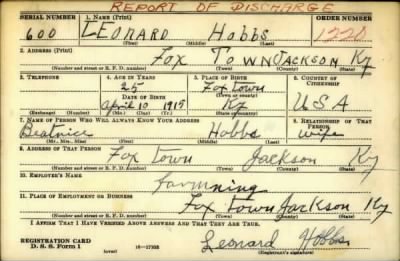 REPORT OF DISCHARGE
SERIAL NUMBER 1. NAME (Print) ORDER NUMBER
600 LEONARD Hobbs 1220
(First) (Middle) (Last)
2. ADDRESS (Print)
Fox TOWN JACKSON Ky
(Number and street or R. F. D. number) (Town) (County) (State)
3. TELEPHONE 4. AGE IN YEARS 5. PLACE OF BIRTH 6. COUNTRY OF CITIZENSHIP
25 Foxtown
DATE OF BIRTH (Town or county)
April 10 1915 Ky USA
(Exchange) (Number) (Mo.) (Day) (Yr.) (State or country)
7. NAME OF PERSON WHO WILL ALWAYS KNOW YOUR ADDRESS 8. RELATIONSHIP OF THAT PERSON
Beatrice Hobbs wife
(Mr., Mrs., Miss) (First) (Middle) (Last)
9. ADDRESS OF THAT PERSON
Fox Town Jackson Ky
(Number and street or R. F. D. number) (Town) (County) (State)
10. EMPLOYER'S NAME
farmning
11. PLACE OF EMPLOYMENT OR BUSINESS
Fox Town Jackson Ky
(Number and street or R. F. D. number) (Town) (County) (State)
I AFFIRM THAT I HAVE VERIFIED ABOVE ANSWERS AND THAT THEY ARE TRUE.
REGISTRATION CARD
D. S. S. Form 1 (over) 16—17105 Leonard Hobbs
(Registrant's signature)